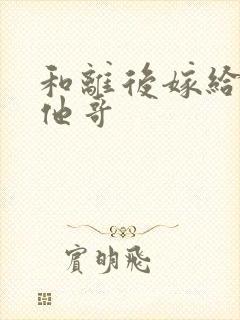 和離後嫁給
他哥
賓明飛